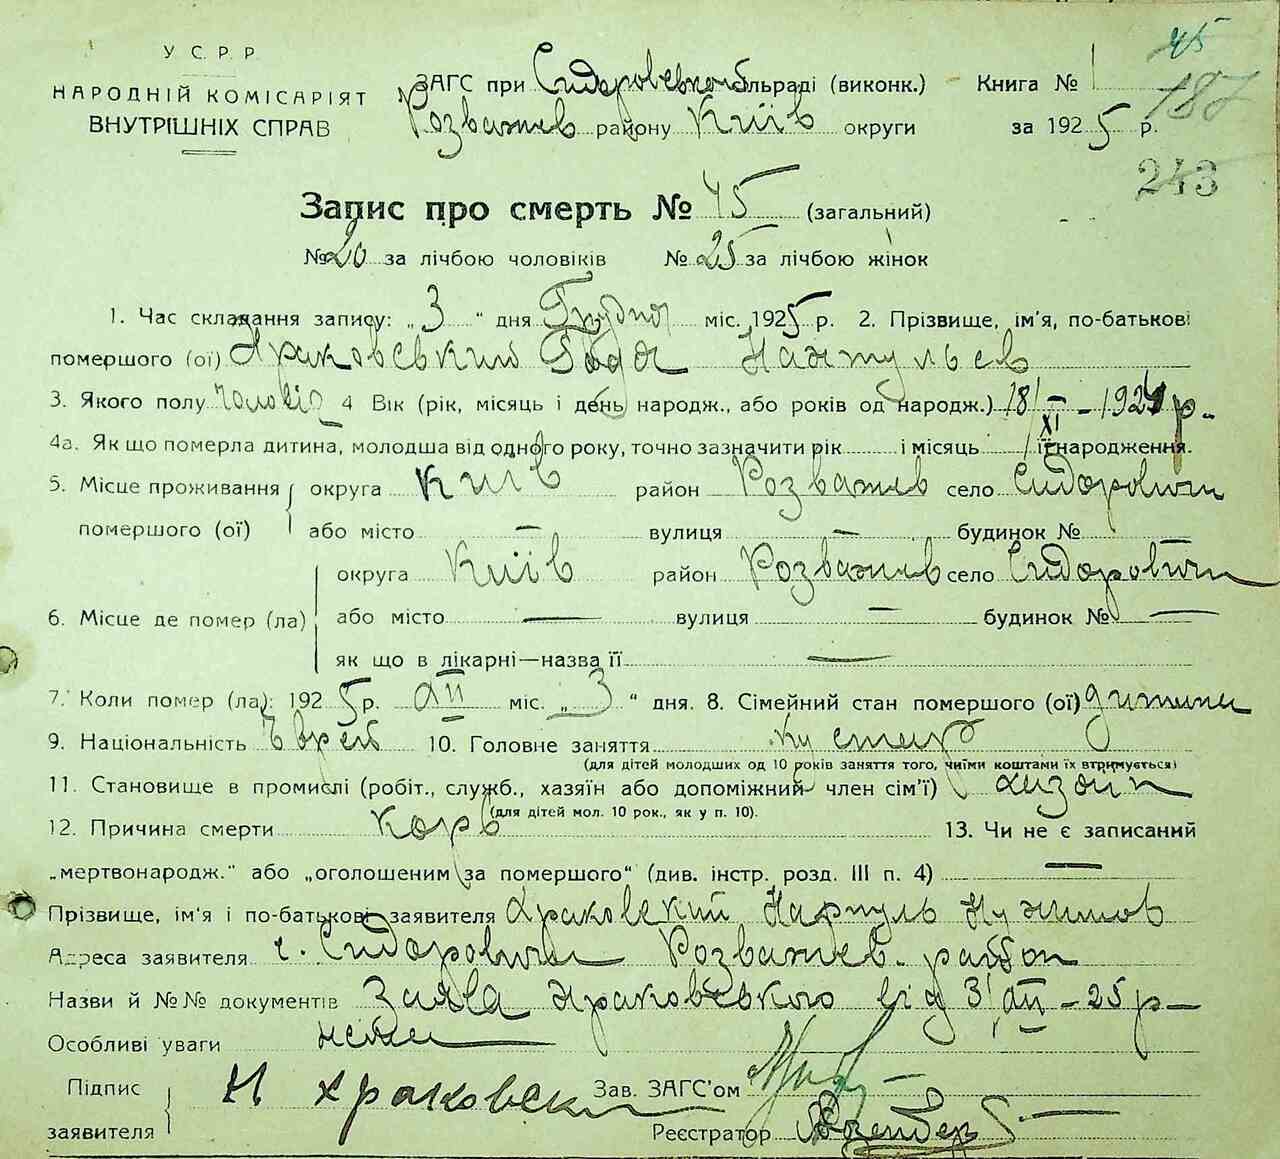 У С. Р. Р.
НАРОДНІЙ КОМІСАРІЯТ
ВНУТРІШНІХ СПРАВ
ЗАГС при Сидоровській сільраді (виконк.)
Розважев району Київ округи
Книга № 1
за 1925 р.
45
187
243
Запис про смерть № 45 (загальний)
№ 20 за лічбою чоловіків № 25 за лічбою жінок
1. Час складання запису: „3“ дня Грудня міс. 1925 р. 2. Прізвище, ім'я, по-батькові
помершого (ої) Храковський
3. Якого полу Чоловіч 4 Вік (рік, місяць і день народж., або років од народж.) 18/XI – 1924 р.
4а. Як що померла дитина, молодша від одного року, точно зазначити рік і місяць її народження.
5. Місце проживання помершого (ої) округа Київ район Розважев село Сидоровичи
або місто — вулиця — будинок № —
6. Місце де помер (ла) округа Київ район Розважев село Сидоровичи
або місто — вулиця — будинок № —
як що в лікарні—назва її —
7. Коли помер (ла): 1925 р. XII міс. „3“ дня. 8. Сімейний стан помершого (ої) дитина
9. Національність Єврей 10. Головне заняття кустарь
(для дітей молодших од 10 років заняття того, чиїми коштами їх втримується)
11. Становище в промислі (робіт., служб., хазяїн або допоміжний член сім'ї) хазяїн
(для дітей мол. 10 рок., як у п. 10).
12. Причина смерти корь 13. Чи не є записаний
„мертвонародж.“ або „оголошеним за помершого“ (див. інстр. розд. III п. 4) —
Прізвище, ім'я і по-батькові заявителя Храковский
Адреса заявителя с. Сидоровичи Розважев. район
Назви й №№ документів Заява Храковського від 3/XII – 25 р –
Особливі уваги нема
Підпис заявителя Н Храковский
Зав. ЗАГС'ом
Реєстратор